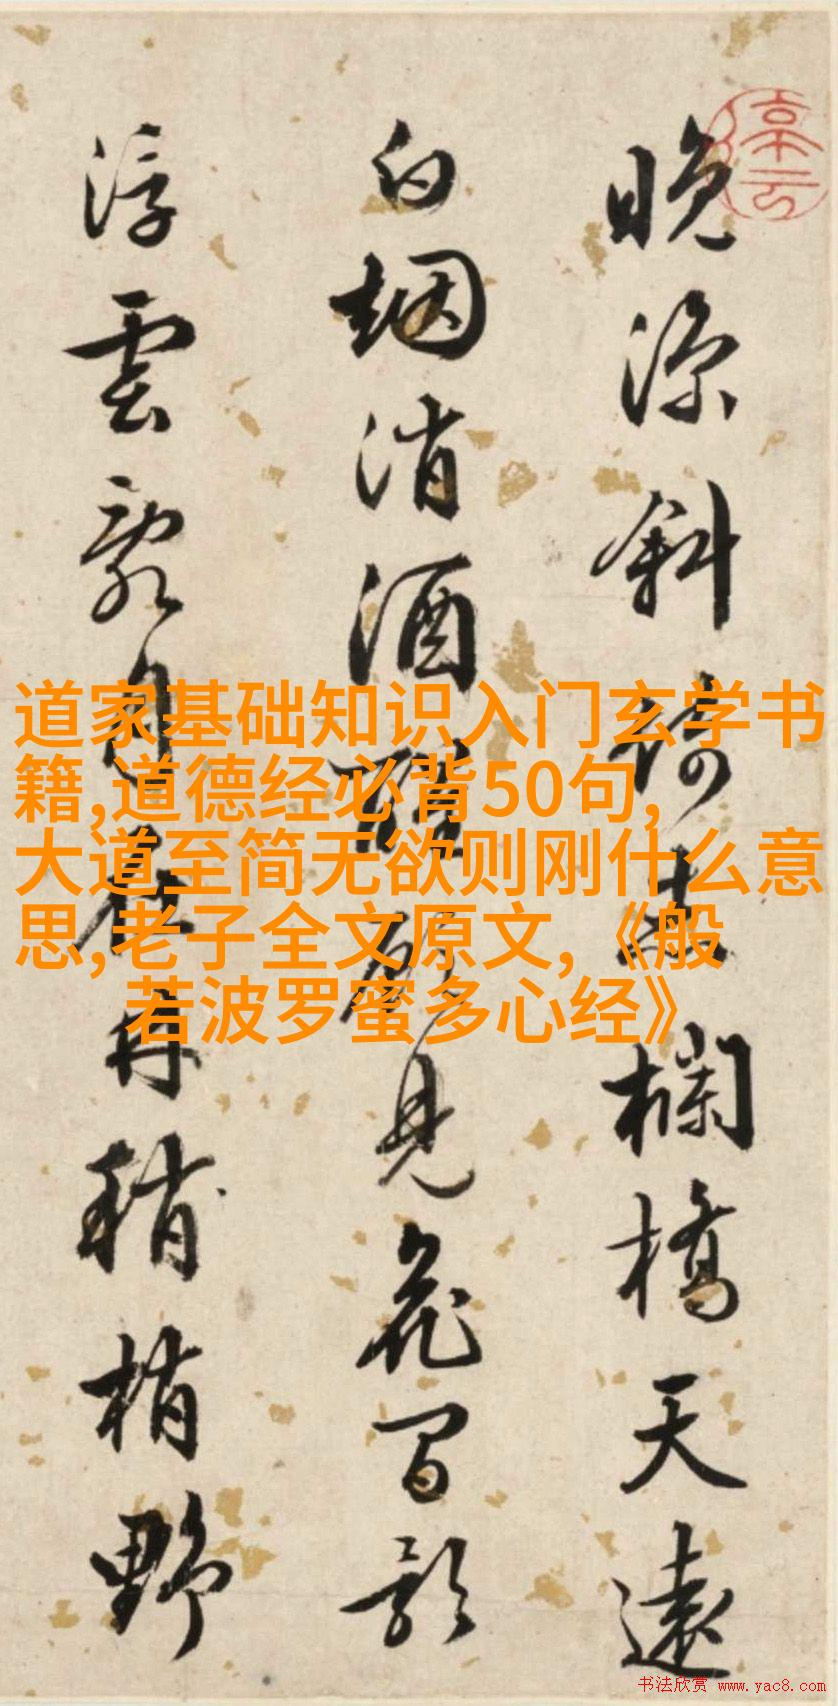 晚涼斜倚赤欄橋天遠
白烟消酒醒見花間影
浮雲月在稍梢野
道家基础知识入门玄学书
籍,道德经必背50句,
大道至简无欲则刚什么意
思,老子全文原文,《般
若波罗蜜多心经》
书法欣赏 www.yac8.com